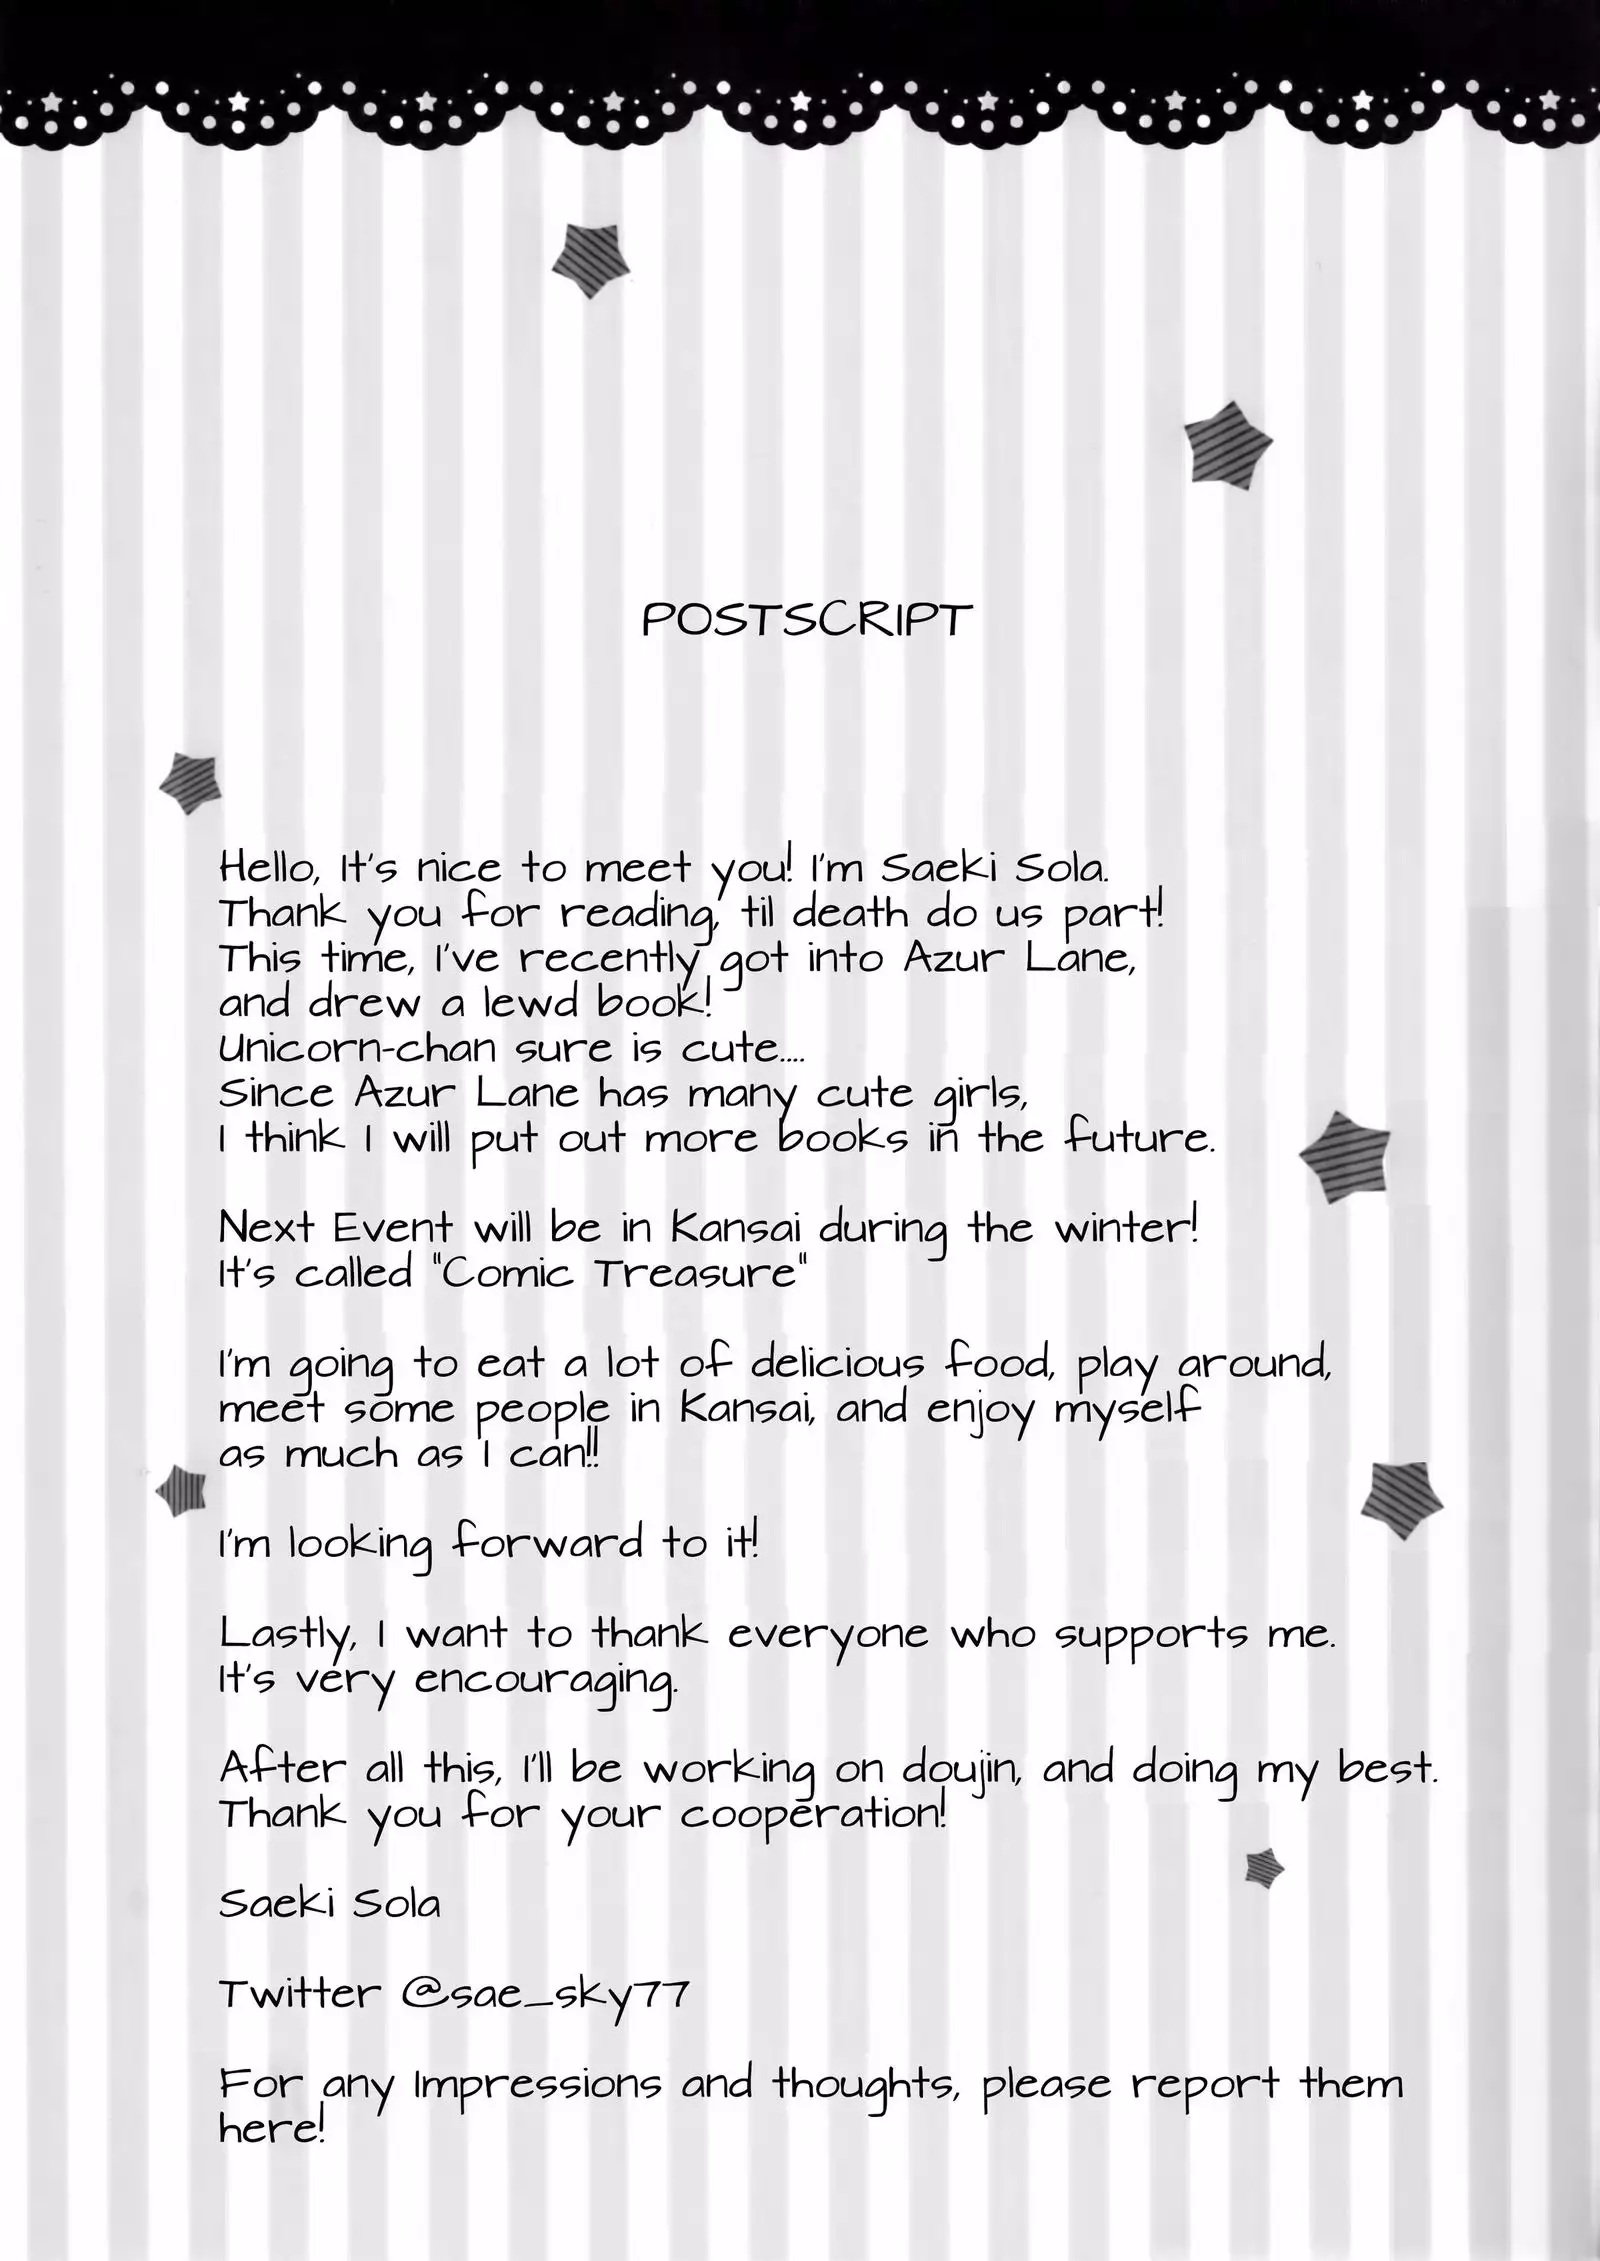 POSTSCRIPT
Hello, It's nice to meet you! I'm Saeki Sola.
Thank you for reading, til death do us part!
This time, I've recently got into Azur Lane,
and drew a lewd book!
Unicorn-chan sure is cute....
Since Azur Lane has many cute girls,
I think I will put out more books in the future.
Next Event will be in Kansai during the winter!
It's called "Comic Treasure"
I'm going to eat a lot of delicious food, play around,
meet some people in Kansai, and enjoy myself
as much as I can!!
I'm looking forward to it!
Lastly, I want to thank everyone who supports me.
It's very encouraging.
After all this, I'll be working on doujin, and doing my best.
Thank you for your cooperation!
Saeki Sola
Twitter @sae_sky77
For any Impressions and thoughts, please report them
here!